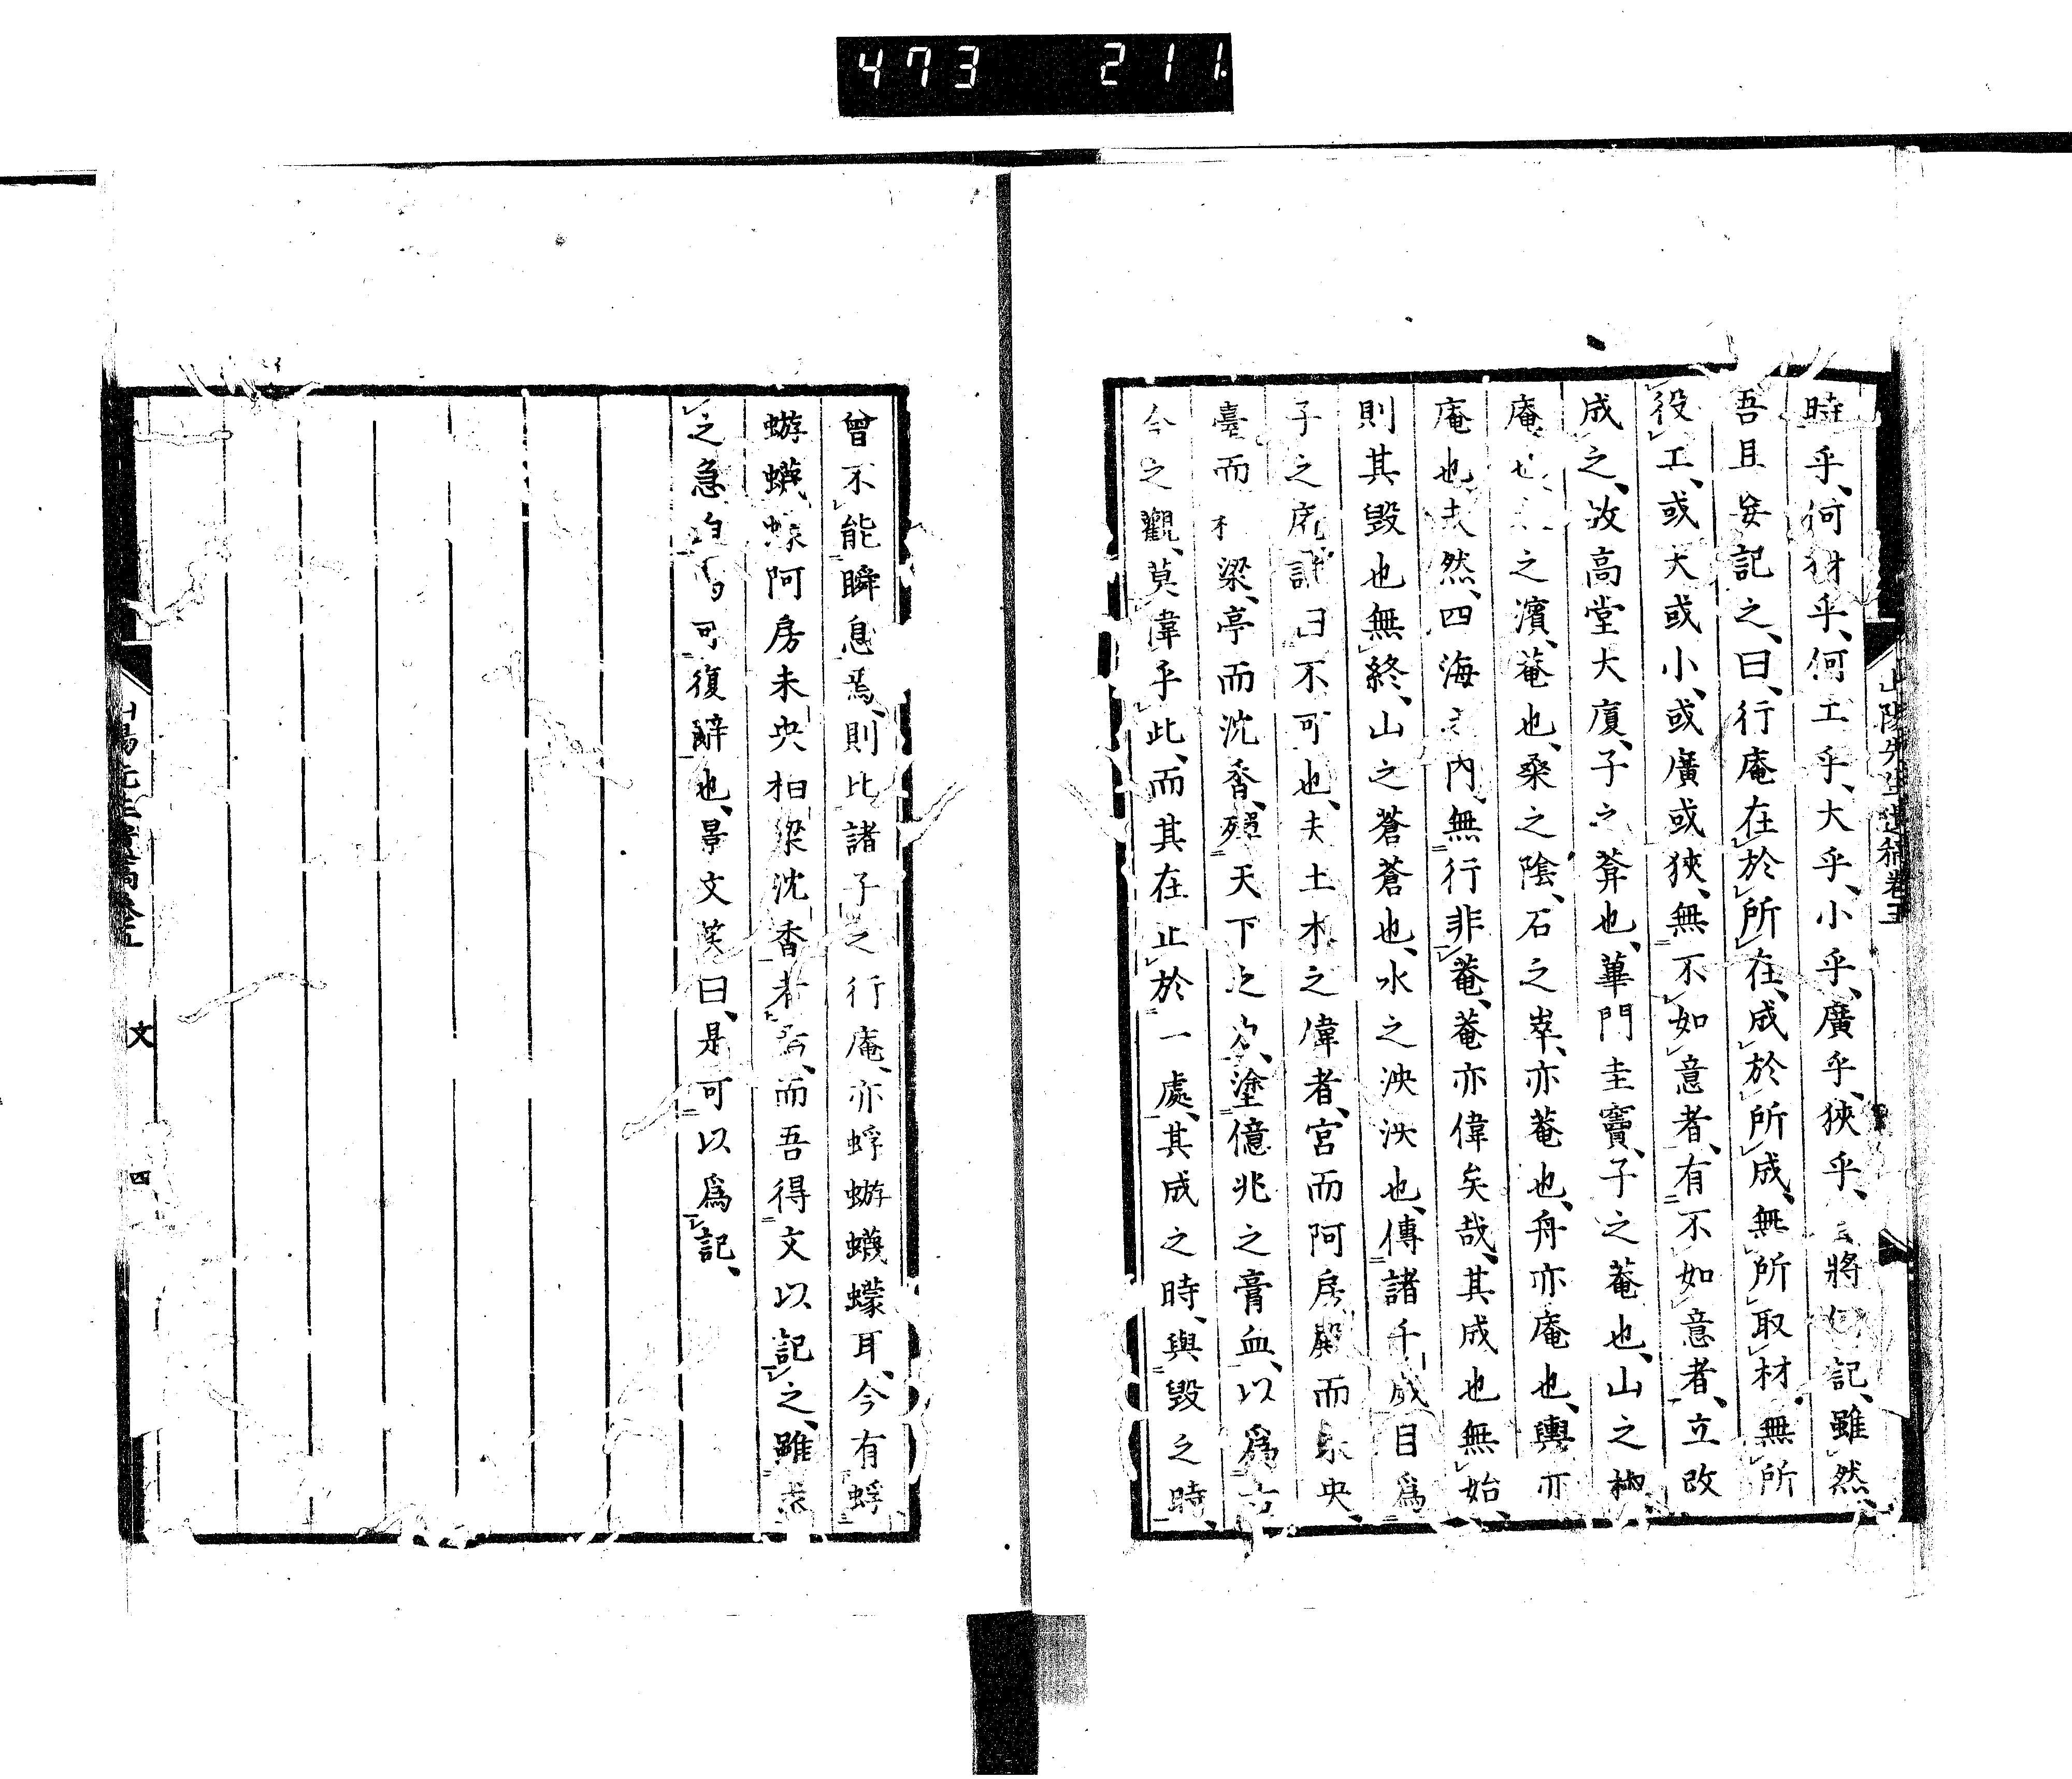 473 211
時乎、何材乎、何工乎、大乎、小乎、廣乎、狹乎、將記、雖然、
吾且妄記之、曰、行庵在於所在、成於所成、無所取材、無所
役工、或大或小、或廣或狹、無不如意者、有不如意者、立改
成之、故高堂大廈、子之菴也、蓽門圭竇、子之菴也、山之椒
庵也之濱、菴也、桑之陰、石之崒、亦菴也、舟亦庵也、輿亦
庵也、夫然、四海之內、無行非菴、菴亦偉矣哉、其成也無始、
則其毀也無終、山之蒼蒼也、水之泱泱也、傳諸千歲目爲
子之庵、許曰不可也、夫土木之偉者、宮而阿房、殿而未央、
臺而梁、亭而沈香、殫天下之力、塗億兆之膏血、以爲古
今之觀、莫偉乎此、而其在止於一處、其成之時、與毀之時、
山陽先生遺稿卷五
曾不能瞬息焉、則比諸子之行庵、亦蜉蝣蠛蠓耳、今有蜉
蝣蠛蠓阿房未央柏梁沈香者、而吾得文以記之、雖
之急可復辭也、景文笑曰、是可以爲記、
山陽先生遺稿卷五 文 四